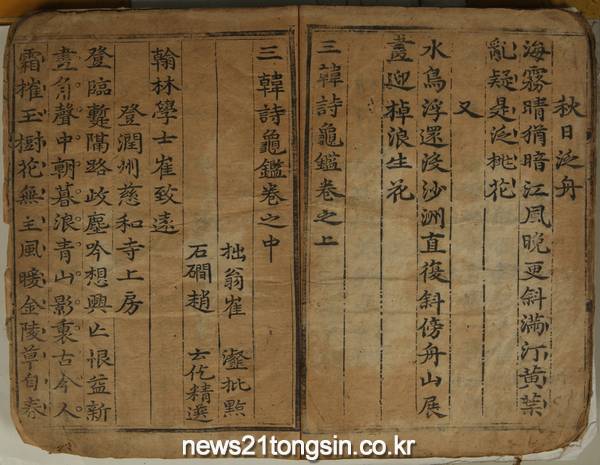 秋日泛舟
海霧晴猶暗江風晚更斜滿汀黃葉
亂疑是泛桃花
又
水鳥浮還沒沙洲直復斜傍舟山展
蓋迎棹浪生花
三韓詩龜鑑卷之上
三韓詩龜鑑卷之中
拙翁崔 瀣批點
石磵趙 云仡精選
翰林學士崔致遠
登潤州慈和寺上房
登臨蹔隔路歧塵吟想興亡恨益新
畫角聲中朝暮浪青山影裏古今人
霜摧玉樹花無主風暖金陵草自春
news21tongsin.co.kr